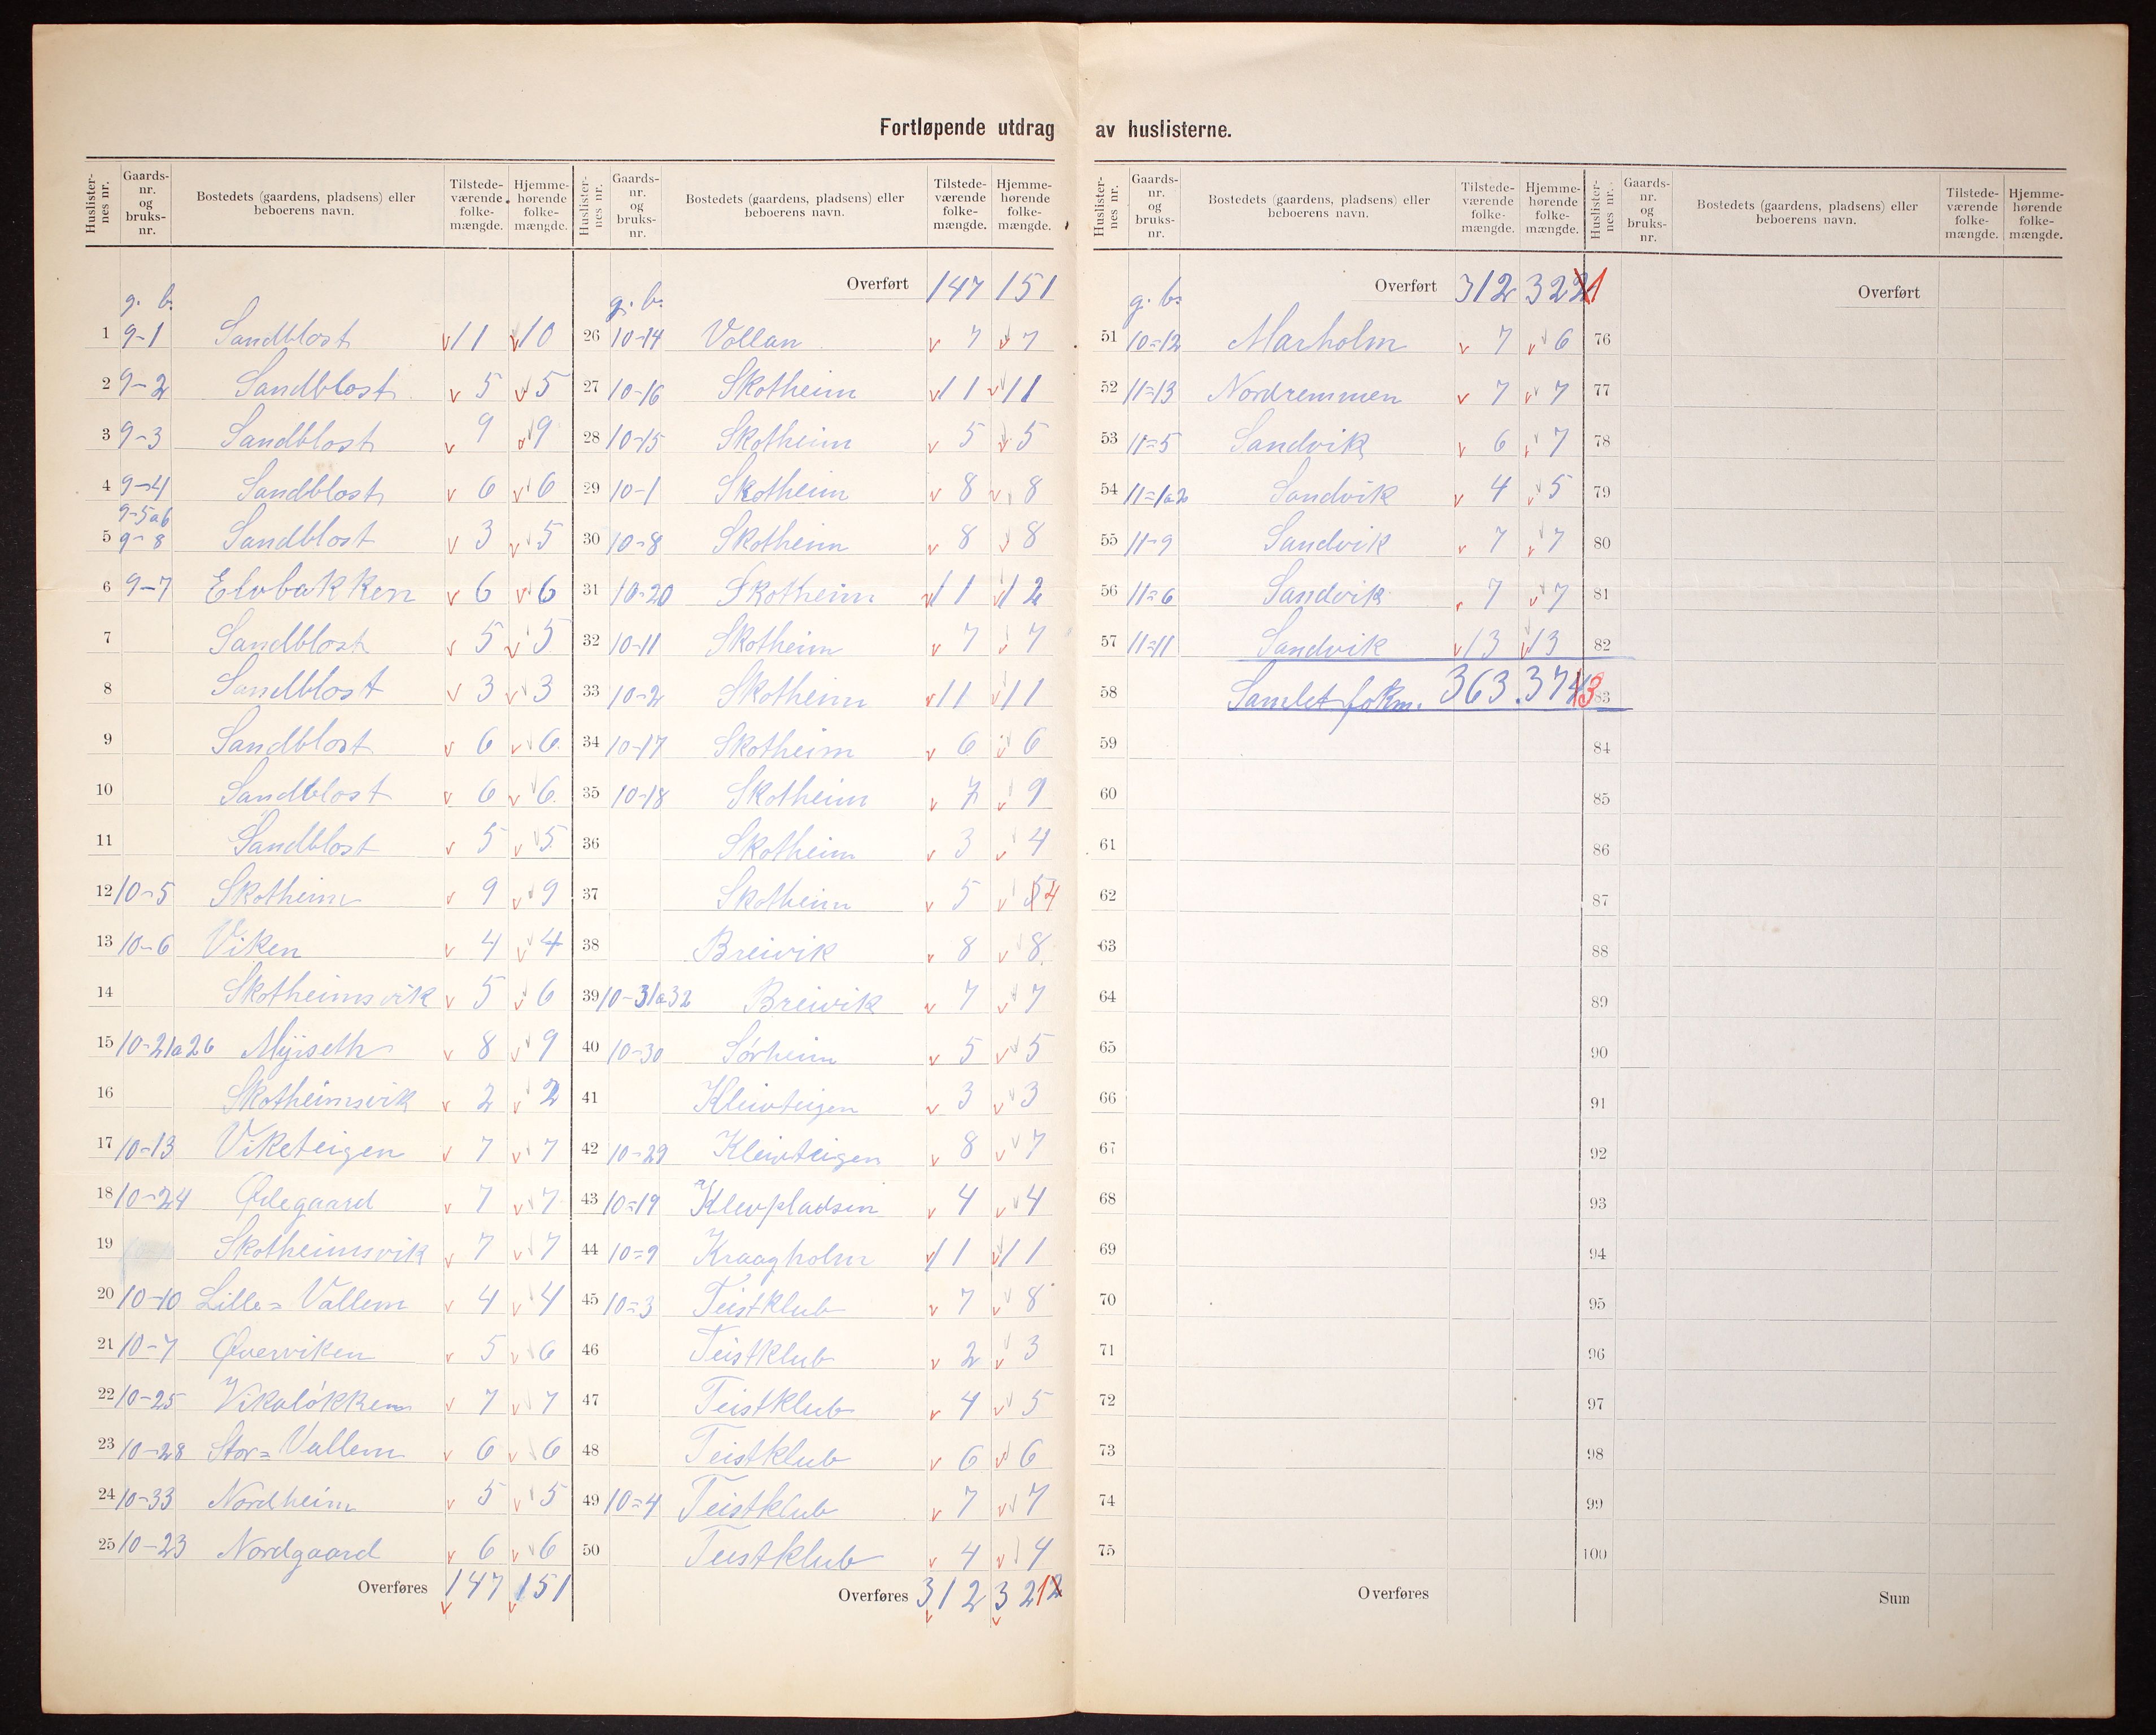 Fortløpende utdrag av huslisterne.
Huslisternes nr. Gaards-nr. og bruks-nr. Bostedets (gaardens, pladsens) eller beboerens navn. Tilstedeværende folkemængde. Hjemmehørende folkemængde.
g. b.
1 9-1 Sandblost 11 10
2 9-2 Sandblost 5 5
3 9-3 Sandblost 9 9
4 9-4 Sandblost 6 6
9-5a6
5 9-8 Sandblost 3 5
6 9-7 Elvbakken 6 6
7 Sandblost 5 5
8 Sandblost 3 3
9 Sandblost 6 6
10 Sandblost 6 6
11 Sandblost 5 5
12 10-5 Skotheim 9 9
13 10-6 Viken 4 4
14 Skotheimsvik 5 6
15 10-21a26 Myiseth 8 9
16 Skotheimsvik 2 2
17 10-13 Viketeigen 7 7
18 10-24 Ødegaard 7 7
19 Skotheimsvik 7 7
20 10-10 Lille=Vallem 4 4
21 10-7 Øverviken 5 6
22 10-25 Vikaløkken 7 7
23 10-28 Stor=Vallem 6 6
24 10-33 Nordheim 5 5
25 10-23 Nordgaard 6 6
Overføres 147 151
Huslisternes nr. Gaards-nr. og bruks-nr. Bostedets (gaardens, pladsens) eller beboerens navn. Tilstedeværende folkemængde. Hjemmehørende folkemængde.
Overført 147 151
g. b.
26 10-14 Vollan 7 7
27 10-16 Skotheim 11 11
28 10-15 Skotheim 5 5
29 10-1 Skotheim 8 8
30 10-8 Skotheim 8 8
31 10-20 Skotheim 11 12
32 10-11 Skotheim 7 7
33 10-2 Skotheim 11 11
34 10-17 Skotheim 6 6
35 10-18 Skotheim 7 9
36 Skotheim 3 4
37 Skotheim 5 5 4
38 Breivik 8 8
39 10-31a32 Breivik 7 7
40 10-30 Sørheim 5 5
41 Kleivteigen 3 3
42 10-29 Kleivteigen 8 7
43 10=19 Klevpladsen 4 4
44 10=9 Kraagholm 11 11
45 10=3 Teistklub 7 8
46 Teistklub 2 3
47 Teistklub 4 5
48 Teistklub 6 6
49 10=4 Teistklub 7 7
50 Teistklub 4 4
Overføres 312 3212
Huslisternes nr. Gaards-nr. og bruks-nr. Bostedets (gaardens, pladsens) eller beboerens navn. Tilstedeværende folkemængde. Hjemmehørende folkemængde.
Overført 312 3221
g. b.
51 10=12 Marholm 7 6
52 11=13 Nordremmen 7 7
53 11=5 Sandvik 6 7
54 11=1a2 Sandvik 4 5
55 11-9 Sandvik 7 7
56 11=6 Sandvik 7 7
57 11=11 Sandvik 13 13
58 Samlet fokm. 363. 3743
59
60
61
62
63
64
65
66
67
68
69
70
71
72
73
74
75
Overføres
Huslisternes nr. Gaards-nr. og bruks-nr. Bostedets (gaardens, pladsens) eller beboerens navn. Tilstedeværende folkemængde. Hjemmehørende folkemængde.
Overført
76
77
78
79
80
81
82
83
84
85
86
87
88
89
90
91
92
93
94
95
96
97
98
99
100
Sum